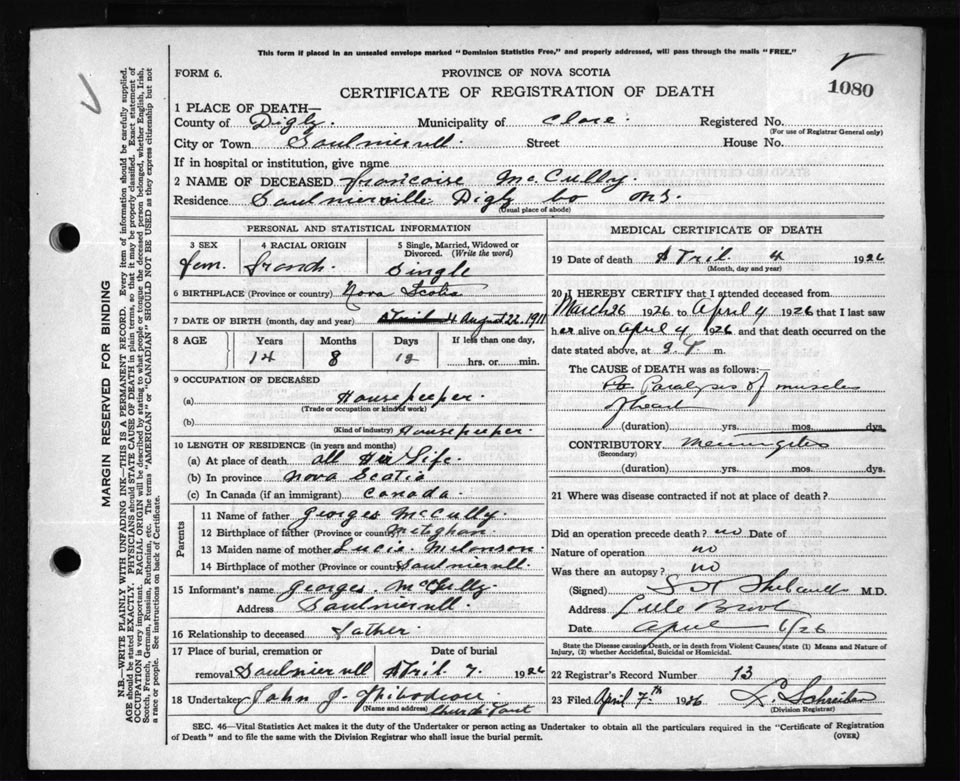 This form if placed in an unsealed envelope marked "Dominion Statistics Free," and properly addressed, will pass through the mails "FREE."
FORM 6.
PROVINCE OF NOVA SCOTIA
CERTIFICATE OF REGISTRATION OF DEATH
1080
1 PLACE OF DEATH—
County of Digby. Municipality of Clare. Registered No.
(For use of Registrar General only)
City or Town Saulnierville. Street House No.
If in hospital or institution, give name
2 NAME OF DECEASED Francoise Mc.Cully.
Residence Saulnierville Digby Co N.S.
(Usual place of abode)
PERSONAL AND STATISTICAL INFORMATION
3 SEX 4 RACIAL ORIGIN 5 Single, Married, Widowed or Divorced. (Write the word)
Fem. French. Single
6 BIRTHPLACE (Province or country) Nova Scotia
7 DATE OF BIRTH (month, day, and year) April 4 August 22. 1911
8 AGE Years Months Days If less than one day,
14 8 12 hrs. or min.
9 OCCUPATION OF DECEASED
(a) Housekeeper.
(Trade or occupation or kind of work)
(b) Housekeeper.
(Kind of industry)
10 LENGTH OF RESIDENCE (in years and months)
(a) At place of death all Her Life.
(b) In province Nova Scotia
(c) In Canada (if an immigrant) Canada.
Parents
11 Name of father Georges McCully.
12 Birthplace of father (Province or country) Meteghan
13 Maiden name of mother Lucie. Melonson.
14 Birthplace of mother (Province or country) Saulnierville.
15 Informant's name Georges McCully
Address Saulnierville.
16 Relationship to deceased Father.
17 Place of burial, cremation or removal Saulnierville Date of burial April 7. 1926
18 Undertaker John J. Thibodeau
(Name and address) Church Point
MEDICAL CERTIFICATE OF DEATH
19 Date of death April 4 1926
(Month, day and year)
20 I HEREBY CERTIFY that I attended deceased from
March 26 1926 to April 4 1926 that I last saw
her alive on April 4 1926 and that death occurred on
date stated above, at 9 P m.
The CAUSE of DEATH was as follows:—
Paralysis of muscles
of heart
(duration) yrs. mos. dys.
CONTRIBUTORY Meningites
(Secondary)
(duration) yrs. mos. dys.
21 Where was disease contracted if not at place of death?
Did an operation precede death? no Date of
Nature of operation no
Was there an autopsy? no
(Signed) Thibault M.D.
Address Little Brook
Date April 6/26
State the Disease causing Death, or in death from Violent Causes state (1) Means and Nature of Injury, (2) whether Accidental, Suicidal or Homicidal.
22 Registrar's Record Number 13
23 Filed April 7th 1926 Schreiber
(Division Registrar)
SEC. 46—Vital Statistics Act makes it the duty of the Undertaker or person acting as Undertaker to obtain all the particulars required in the "Certificate of Registration
of Death" and to file the same with the Division Registrar who shall issue the burial permit. (OVER)
MARGIN RESERVED FOR BINDING
N.B.—WRITE PLAINLY WITH UNFADING INK—THIS IS A PERMANENT RECORD. Every item of information should be carefully supplied.
AGE should be stated EXACTLY. PHYSICIANS should STATE CAUSE OF DEATH in plain terms, so that it may be properly classified. Exact statement of
OCCUPATION is very important. RACIAL ORIGIN will be described by stating to what people or tongue the deceased person belonged, whether English, Irish,
Scotch, French, German, Russian, Ruthenian, etc. The terms "AMERICAN" or "CANADIAN" SHOULD NOT BE USED as they express citizenship but not
a race or people. See instructions on back of Certificate.